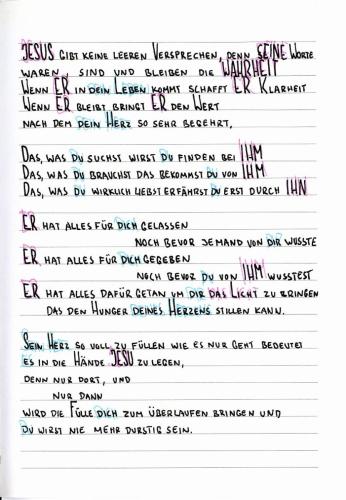 JESUS GIBT KEINE LEEREN VERSPRECHEN, DENN SEINE WORTE
WAREN, SIND UND BLEIBEN DIE WAHRHEIT
WENN ER IN DEIN LEBEN KOMMT SCHAFFT ER KLARHEIT
WENN ER BLEIBT BRINGT ER DEN WERT
NACH DEM DEIN HERZ SO SEHR BEGEHRT.
DAS, WAS DU SUCHST WIRST DU FINDEN BEI IHM
DAS, WAS DU BRAUCHST DAS BEKOMMST DU VON IHM
DAS, WAS DU WIRKLICH LIEBST ERFÄHRST DU ERST DURCH IHN
ER HAT ALLES FÜR DICH GELASSEN
NOCH BEVOR JEMAND VON DIR WUSSTE
ER HAT ALLES FÜR DICH GEGEBEN
NOCH BEVOR DU VON IHM WUSSTEST
ER HAT ALLES DAFÜR GETAN UM DIR DAS LICHT ZU BRINGEN
DAS DEN HUNGER DEINES HERZENS STILLEN KANN.
SEIN HERZ SO VOLL ZU FÜLLEN WIE ES NUR GEHT BEDEUTET
ES IN DIE HÄNDE JESU ZU LEGEN,
DENN NUR DORT, UND
NUR DANN
WIRD DIE FÜLLE DICH ZUM ÜBERLAUFEN BRINGEN UND
DU WIRST NIE MEHR DURSTIG SEIN.